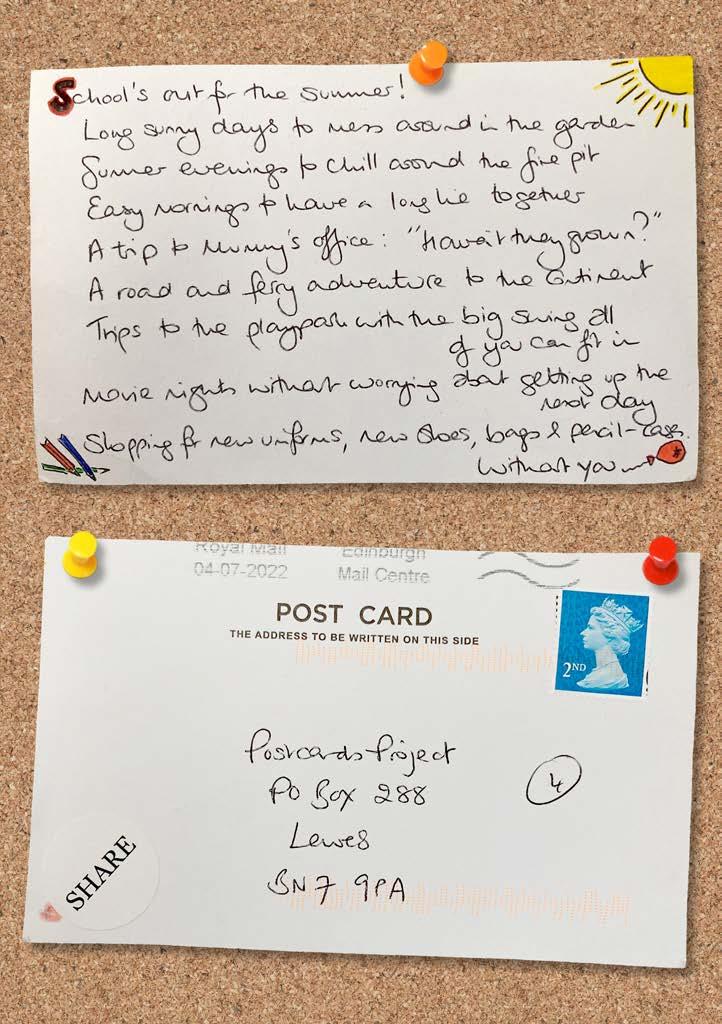 School's out for the summer!
Long sunny days to mess around in the garden
Summer evenings to chill around the fire pit
Easy mornings to have a long lie together
A trip to Mummy's office: "Haven't they grown?"
A road and ferry adventure to the Continent
Trips to the playpark with the big swing all
of you can fit in
Movie nights without worrying about getting up the
next day
Shopping for new uniforms, new shoes, bags & pencil-cases.
Without you
Royal Mail Edinburgh
04-07-2022 Mail Centre
POST CARD
THE ADDRESS TO BE WRITTEN ON THIS SIDE
2ND
Postcards Project
PO Box 288
4
Lewes
BN7 9PA
SHARE